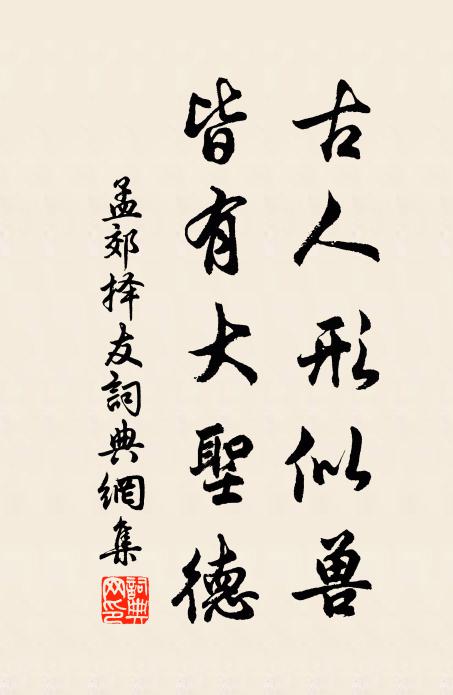 古人形似兽
皆有大聖德
孟郊择友詞典網集
詞典網印